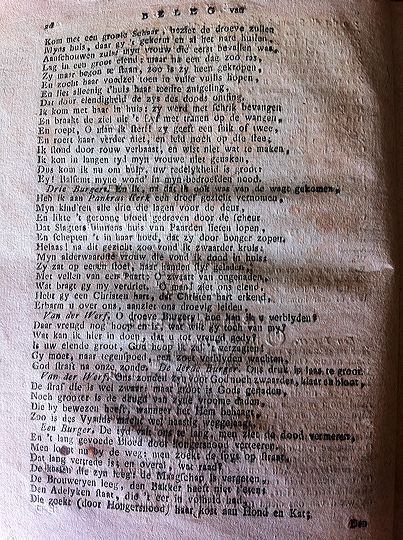 28 BELEG van
Kom met een groote Schaar, beziet de droeve zullen
Myns huis, daar gy 't gekerm en al het nare huilen,
Aanschouwen zult; myn vrouw die eerst bevallen was,
Lag in een groot elend; maar na een dat zoo ras,
Zy maar begon te staan, zoo is zy heen gekropen,
En zocht haar voedzel toen in vuile vuilis hopen,
En liet alleenig t'huis haar teedre zuigeling,
Dat door elendigheid de zys des doods onfing.
Ik kom met haar in huis; zy werd met schrik bevangen
En braakt de ziel uit 't lyf met tranen op de wangen,
En roept, O man ik sterf! zy geeft een snik of twee,
En roert haar verder niet, en leid noch op die stee;
Ik stond door rouw verbaast, en wist niet wat te maken,
Ik kon in langen tyd myn vrouwe niet genaken,
Dus kom ik nu om hulp, uw redelykheid is groot:
Ey! Balsemt myne wond' in myn bedroefden nood.
Drie Burgers. En ik, nu dat ik ook was van de wagt gekomen,
Heb ik aan Pankras Kerk een droef gezicht vernomen,
Myn kind'ren alle drie die lagen voor de deur,
En likte 't geronne bloed gedreven door de scheur.
Dat Slagters binnens huis van Paarden lieten lopen,
En schepten 't in haar hoed, dat zy door honger zopen,
Helaas! na dit gezicht zoo vond ik zwaarder kruis:
Myn alderwaardste vrouw die vond ik dood in huis;
Zy zat op eenen stoel, haar handen styf geladen,
Met vellen van een Paart: O zwaast van ongenaden,
Wat bragt gy my verdriet, O man! ziet ons elend,
Hebt gy een Christen hart, dat Christen hart erkend,
Erbarm u over ons, aanziet ons droevig leiden.
Van der Werf. O droeve Burger! hoe kan ik u verblyden?
Daar vreugd nog hoop en is, wat wilt gy toch van my?
Wat kan ik hier in doen, dat u tot vreugd gedy?
Is uw elende groot, God hoop ik zal 't verzagten;
Gy moet, naar tegenspoed, een zoet verblyden wachten,
God straft na onze zonde. De derde Burger. Ons druk is laas te groot.
Van der Werf. Ons zonden zyn voor God noch zwaarder, klaar en bloot,
De straf die is wel zwaar, maar groot is Gods genaden,
Noch grooter de vreugd van zyne vroome daden,
Die hy bewezen heeft, wanneer het Hem behaagt,
Zoo is des Vyands macht wel haastig weggejaagt.
Een Burger. De tyd valt ons te lang, men ziet de dood vermeren,
En 't lang gevoede Bloed door Hongersnood verteeren,
Men loopt nu by de weg, men zoekt de spys op straat,
Dat lang vertrede is, en overal, wat raad?
De keuken die zyn leeg, de Maagschap is vergeten,
De Brouweryen leeg, den Bakker heeft niet t'eten,
Den Adelyken staat, die 't eer in volheid had,
Die zoekt (door Hongersnood) haar kost aan Hond en Kat;
Den